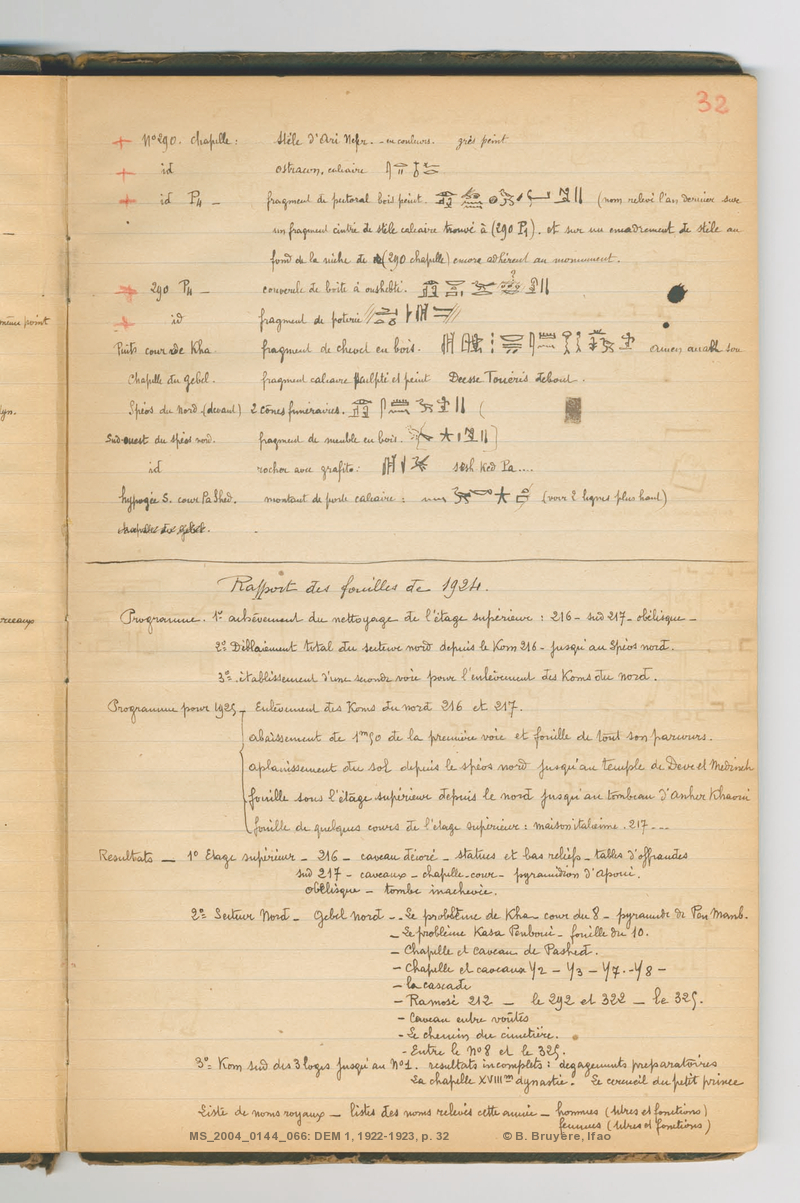 32
+ N° 290. chapelle : Stèle d'Ari Nefer. - en couleurs. grès peint
+ id ostracon, calcaire
+ id P4 — fragment de pectoral bois peint. (nom relevé l'an dernier sur
un fragment cintré de stèle calcaire trouvé à (290 P1). et sur un encadrement de stèle au
fond de la niche de (290 chapelle) encore adhérent au monument.
+ 290 P4 — couvercle de boîte à oushebti. ?
même point
+ id fragment de poterie
Puits cour de Kha. fragment de chevet en bois.
Chapelle du Gebel. fragment calcaire sculpté et peint Deesse Touëris debout.
lyn.
Spéos du Nord (devant) 2 cônes funéraires. (
Sud-ouest du spéos nord. fragment de meuble en bois.
id rocher avec grafito : sesh Ked Pa....
hypogée S. cour Pashed. montant de porte calcaire : (voir 2 lignes plus haut)
chapelle du gebel. -
Rapport des fouilles de 1924.
Programme. 1° achèvement du nettoyage de l'étage supérieur : 216 - sud 217 - obélisque —
rceaux
2° Déblaiement total du secteur nord depuis le Kom 216 - jusqu'au Spéos nord.
3° établissement d'une seconde voie pour l'enlèvement des Koms du nord.
Programme pour 1925 - Enlèvement des Koms du nord 216 et 217.
abaissement de 1m50 de la première voie et fouille de tout son parcours.
aplanissement du sol depuis le spéos nord jusqu'au temple de Deir el Medineh
fouille sous l'étage supérieur depuis le nord jusqu'au tombeau d'Anher Khaoui
fouille de quelques cours de l'étage supérieur : maison italienne . 217 ---
Resultats — 1° Etage supérieur - 216 - caveau décoré - statues et bas reliefs - tables d'offrandes
sud 217 - caveaux - chapelle - cour - pyramidion d'Apoui.
obélisque - tombe inachevée.
2° Secteur Nord - Gebel nord - - Le problème de Kha - cour du 8 - pyramide de Pen Mamb.
- Le problème Kasa Penboui - fouille du 10.
- Chapelle et caveau de Pashed.
- Chapelle et caveaux Y2 - Y3 - Y7 - Y8 -
- la cascade
- Ramosé 212 — le 292 et 322 - le 325.
- Caveau entre voûtes
- Le chemin du cimetière.
- Entre le N° 8 et le 325.
3° Kom sud des 3 loges jusqu'au N° 1. resultats incomplets : degagements preparatoires
La chapelle XVIIIme dynastie. Le cercueil du petit prince
Liste de noms royaux — listes des noms relevés cette année - hommes (titres et fonctions)
femmes (titres et fonctions)
MS_2004_0144_066: DEM 1, 1922-1923, p. 32 © B. Bruyère, Ifao